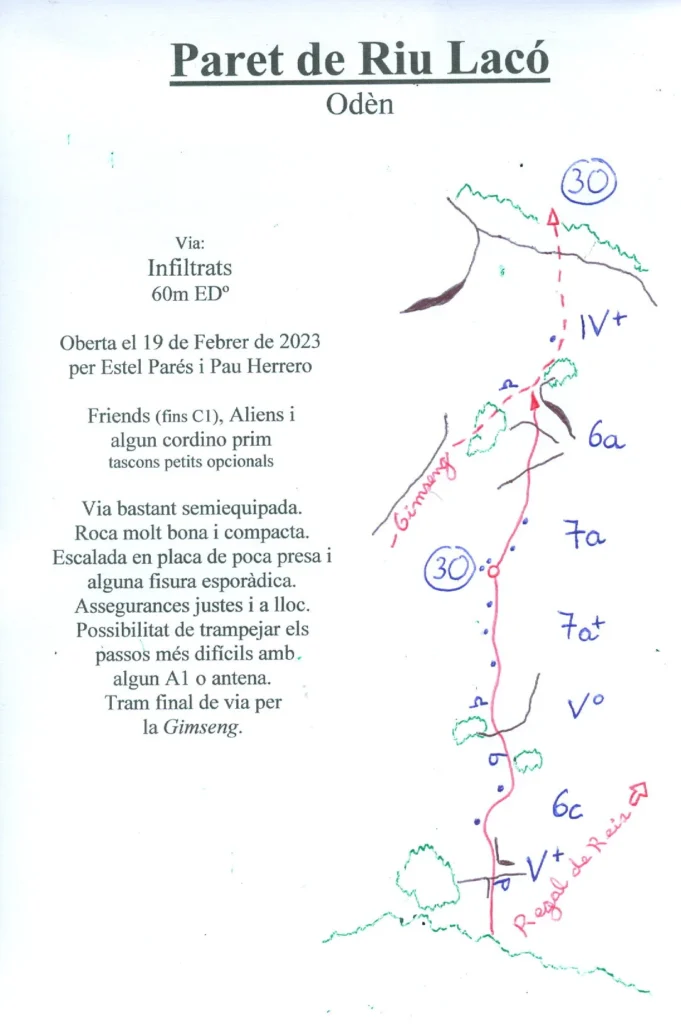 Paret de Riu Lacó
Odèn
Via:
Infiltrats
60m EDº
Oberta el 19 de Febrer de 2023
per Estel Parés i Pau Herrero
Friends (fins C1), Aliens i
algun cordino prim
tascons petits opcionals
Via bastant semiequipada.
Roca molt bona i compacta.
Escalada en placa de poca presa i
alguna fisura esporàdica.
Assegurances justes i a lloc.
Possibilitat de trampejar els
passos més difícils amb
algun A1 o antena.
Tram final de via per
la Gimseng.
30
IV+
6a
Gimseng
7a
30
7a+
Vº
6c
V+
Regal de Reis